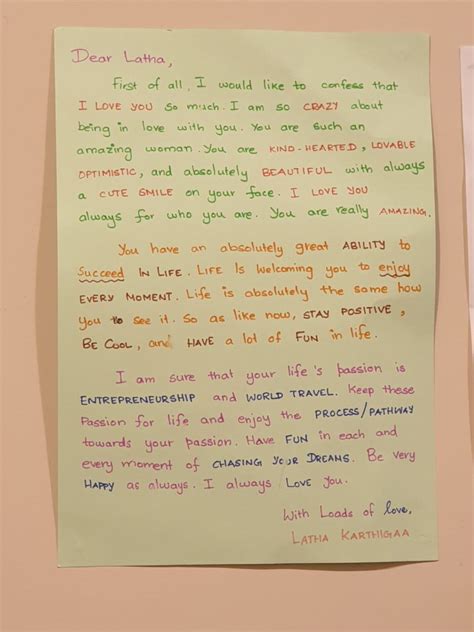 Dear Latha,
First of all, I would like to confess that
I LOVE YOU so much. I am so CRAZY about
being in love with you. You are such an
amazing woman. You are KIND-HEARTED, LOVABLE
OPTIMISTIC, and absolutely BEAUTIFUL with always
a CUTE SMILE on your face. I LOVE YOU
always for who you are. You are really AMAZING.
You have an absolutely great ABILITY to
Succeed IN LIFE. LIFE Is Welcoming you to enjoy
EVERY MOMENT. Life is absolutely the same how
You to see it. So as like now, STAY POSITIVE,
BE COOL, and HAVE a lot of FUN in life.
I am sure that your life's passion is
ENTREPRENEURSHIP and WORLD TRAVEL. Keep these
Passion for life and enjoy the PROCESS/PATHWAY
towards your passion. Have FUN in each and
every moment of CHASING YOUR DREAMS. Be very
HAPPY as always. I always LOVE You.
With Loads of love,
LATHA KARTHIGAA